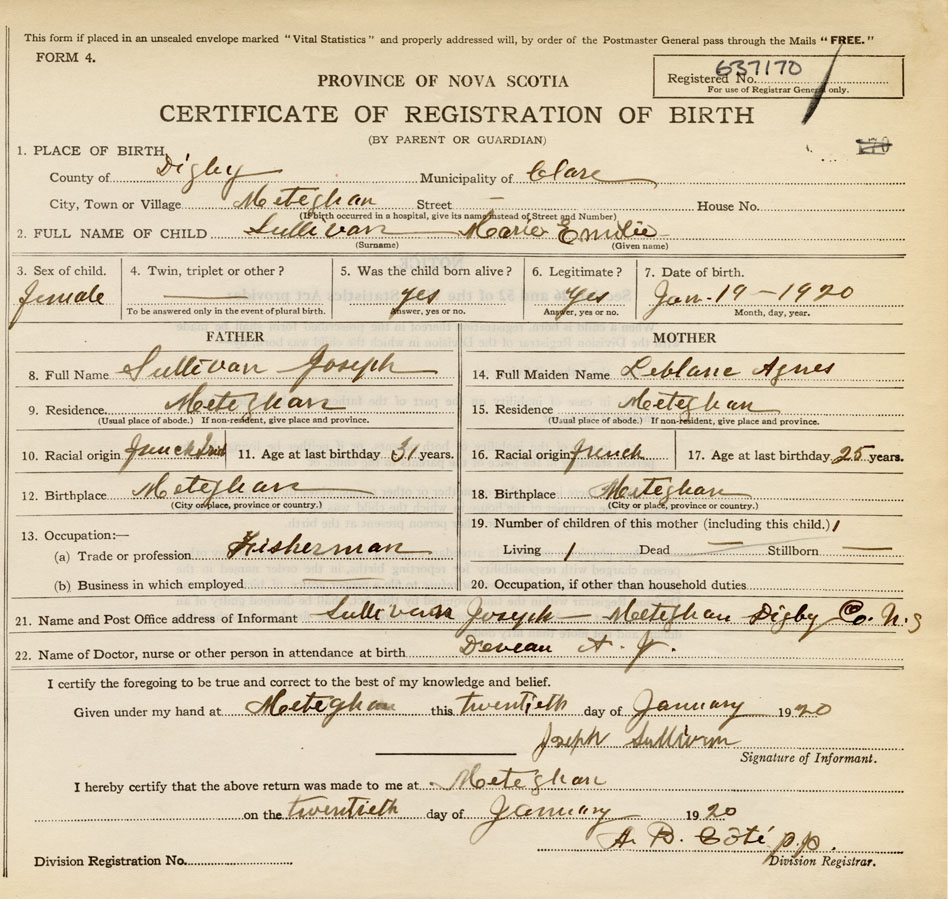 This form if placed in an unsealed envelope marked "Vital Statistics" and properly addressed will, by order of the Postmaster General pass through the Mails "FREE."
FORM 4.
637170
Registered No.
For use of Registrar General only.
PROVINCE OF NOVA SCOTIA
CERTIFICATE OF REGISTRATION OF BIRTH
(BY PARENT OR GUARDIAN)
1. PLACE OF BIRTH
County of Digby Municipality of Clare
City, Town or Village Meteghan Street — House No.
(If birth occurred in a hospital, give its name instead of Street and Number)
2. FULL NAME OF CHILD Sullivan Marie Emilie
(Surname) (Given name)
3. Sex of child. 4. Twin, triplet or other? 5. Was the child born alive? 6. Legitimate? 7. Date of birth.
female — yes Yes Jan-19-1920
To be answered only in the event of plural birth. Answer, yes or no. Answer, yes or no. Month, day, year.
FATHER MOTHER
8. Full Name Sullivan Joseph 14. Full Maiden Name Leblanc Agnes
9. Residence Meteghan 15. Residence Meteghan
(Usual place of abode.) If non-resident, give place and province. (Usual place of abode.) If non-resident, give place and province.
10. Racial origin French Irish 11. Age at last birthday 31 years. 16. Racial origin french 17. Age at last birthday 25 years.
12. Birthplace Meteghan 18. Birthplace Meteghan
(City or place, province or country.) (City or place, province or country.)
13. Occupation:— 19. Number of children of this mother (including this child.) 1
(a) Trade or profession Fisherman Living 1 Dead — Stillborn —
(b) Business in which employed — 20. Occupation, if other than household duties
21. Name and Post Office address of Informant Sullivan Joseph - Meteghan Digby Co. N.S
22. Name of Doctor, nurse or other person in attendance at birth Deveau A. J.
I certify the foregoing to be true and correct to the best of my knowledge and belief.
Given under my hand at Meteghan this twentieth day of January 1920
Joseph Sullivan
Signature of Informant.
I hereby certify that the above return was made to me at Meteghan
on the twentieth day of January 1920
A. B. Côté p.p.
Division Registration No. Division Registrar.